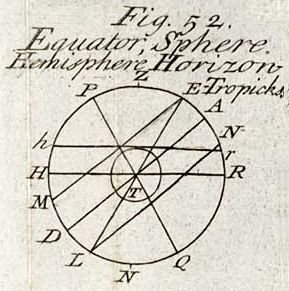 Fig. 52.
Equator, Sphere.
Hemisphere, Horizon,
Z
P
E Tropicks,
A
N
h
r
H
R
T
M
D
L
N
Q